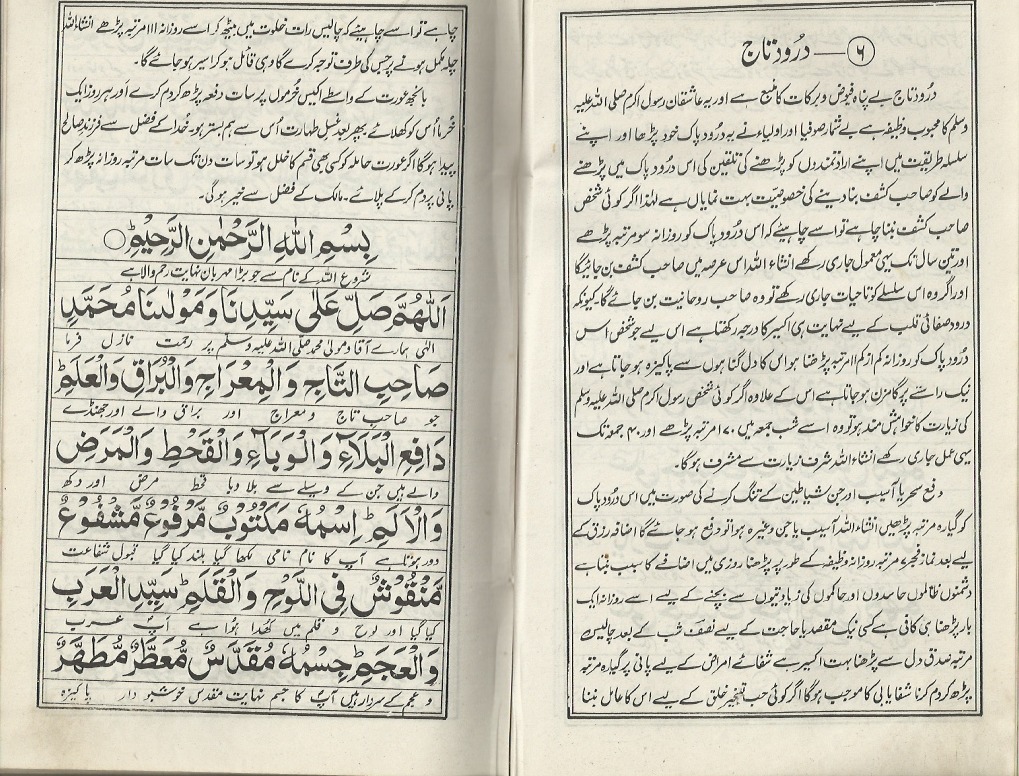 ۶ — درُود تاج
درُود تاج بے پناہ فیوض و برکات کا منبع ہے اور یہ عاشقان رسول اکرم صلی اللہ علیہ
وسلم کا محبوب وظیفہ ہے بے شمار صوفیا اور اولیاء نے یہ درُود پاک خود پڑھا اور اپنے
سلسلہ طریقت میں اپنے ارادتمندوں کو پڑھنے کی تلقین کی اس درُود پاک میں پڑھنے
والے کو صاحب کشف بنا دینے کی خصوصیت بہت نمایاں ہے لہٰذا اگر کوئی شخص
صاحب کشف بننا چاہے تو اسے چاہیئے کہ اس درُود پاک کو روزانہ سو مرتبہ پڑھے
اور تین سال تک یہی معمول جاری رکھے انشاء اللہ اس عرصہ میں صاحب کشف بن جائیگا
اور اگر وہ اس سلسلے کو تاحیات جاری رکھے تو وہ صاحب روحانیت بن جائے گا۔ کیونکہ
درود صفائی قلب کے لیے نہایت ہی اکسیر کا درجہ رکھتا ہے اس لیے جو شخص اس
درُود پاک کو روزانہ کم از کم ۱۱ مرتبہ پڑھتا ہو اس کا دل گنا ہوں سے پاکیزہ ہو جاتا ہے اور
نیک راستے پر گامزن ہو جاتا ہے اس کے علاوہ اگر کوئی شخص رسول اکرم صلی اللہ علیہ وسلم
کی زیارت کا خواہش مند ہو تو وہ اسے شب جمعہ میں ۱۷۰ مرتبہ پڑھے اور ۴۰ جمعہ تک
یہی عمل جاری رکھے انشاء اللہ شرف زیارت سے مشرف ہو گا۔
دفع سحر یا آسیب اور جن شیاطین کے تنگ کرنے کی صورت میں اس درُود پاک
کو گیارہ مرتبہ پڑھیں انشاء اللہ آسیب یا جن وغیرہ ہوا تو دفع ہو جائے گا اضافہ رزق کے
لیے بعد نماز فجر ۷ مرتبہ روزانہ وظیفہ کے طور پر پڑھنا روزی میں اضافے کا سبب بنتا ہے
دشمنوں ظالموں حاسدوں اور حاکموں کی زیادتیوں سے بچنے کے لیے اسے روزانہ ایک
بار پڑھنا ہی کافی ہے کسی نیک مقصد یا حاجت کے لیے نصف شب کے بعد چالیس
مرتبہ صدق دل سے پڑھنا بہت اکسیر ہے شفائے امراض کے لیے پانی پر گیارہ مرتبہ
پڑھ کر دم کرنا شفایابی کا موجب ہوگا اگر کوئی حب تسخیر خلق کے لیے اس کا عامل بننا
چاہے تو اسے چاہیئے کہ چالیس رات خلوت میں بیٹھ کر اسے روزانہ ۱۱۱ مرتبہ پڑھے انشاء اللہ
چلہ مکمل ہونے پر جس کی طرف توجہ کرے گا وہی قائل ہو کر اسیر ہو جائے گا۔
بانجھ عورت کے واسطے اکیس خرموں پر سات دفعہ پڑھ کر دم کرے اور ہر روز ایک
خُرما اُس کو کھلائے پھر بعد غسل طہارت اُس سے ہم بستر ہو۔ خُدا کے فضل سے فرزند صالح
پیدا ہو گا اگر عورت حاملہ کو کسی بھی قسم کا خلل ہو تو سات دن تک سات مرتبہ روزانہ پڑھ کر
پانی پر دم کر کے پلائے۔ مالک کے فضل سے خیر ہو گی۔
بِسْمِ اللّٰهِ الرَّحْمٰنِ الرَّحِيْمِ ○
شروع اللہ کے نام سے جو بڑا مہربان نہایت رحم والا ہے
اَللّٰهُمَّ صَلِّ عَلٰى سَيِّدِنَا وَمَوْلٰىنَا مُحَمَّدٍ
الٰہی ہمارے آقا و مولیٰ محمد صلی اللہ علیہ وسلم پر رحمت نازل فرما
صَاحِبِ التَّاجِ وَالْمِعْرَاجِ وَالْبُرَاقِ وَالْعَلَمِ ط
جو صاحب تاج و معراج اور براق والے اور جھنڈے
دَافِعِ الْبَلَآءِ وَالْوَبَآءِ وَالْقَحْطِ وَالْمَرَضِ
والے ہیں جن کے وسیلے سے بلا وبا قحط مرض اور دکھ
وَالْاَلَمِ ط اِسْمُهٗ مَكْتُوْبٌ مَّرْفُوْعٌ مَّشْفُوْعٌ
دور ہوتا ہے آپ کا نام نامی لکھا گیا بلند کیا گیا قبول شفاعت
مَّنْقُوْشٌ فِى اللَّوْحِ وَالْقَلَمِ ط سَيِّدِ الْعَرَبِ
کیا گیا اور لوح و قلم میں کھدا ہوا ہے آپ عرب
وَالْعَجَمِ ط جِسْمُهٗ مُقَدَّسٌ مُّعَطَّرٌ مُّطَهَّرٌ
و عجم کے سردار ہیں آپ کا جسم نہایت مقدس خوشبو دار پاکیزہ